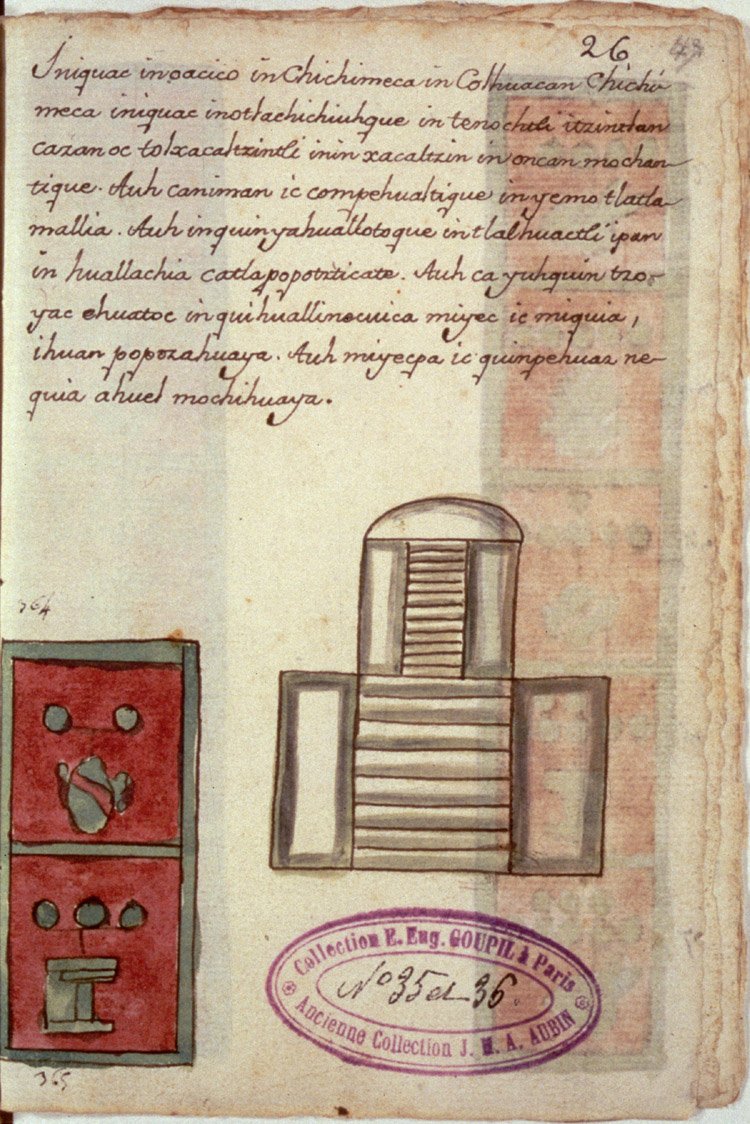 26
Iniquac inoacico in Chichimeca in Colhuacan Chichi-
meca iniquac inotlachichiuhque in tenochtli itzintlan
cazanoc tolxacaltzintli inin xacaltzin in oncan mochan-
tique. Auh caniman ic compehualtique in yemo tlatla-
mallia. Auh inquinyahuallotoque in tlalhuactli ipan
in huallachia catlapopotzticate. Auh ca yuhquin tzo-
yac ehuatoc inquihuallinecuica miyec ic miquia,
ihuan popozahuaya. Auh miyecpa ic quinpehuaz ne-
quia ahuel mochihuaya.
364
365
Collection E. Eug. GOUPIL à Paris
Nº 35 et 36.
Ancienne Collection J. M. A. AUBIN